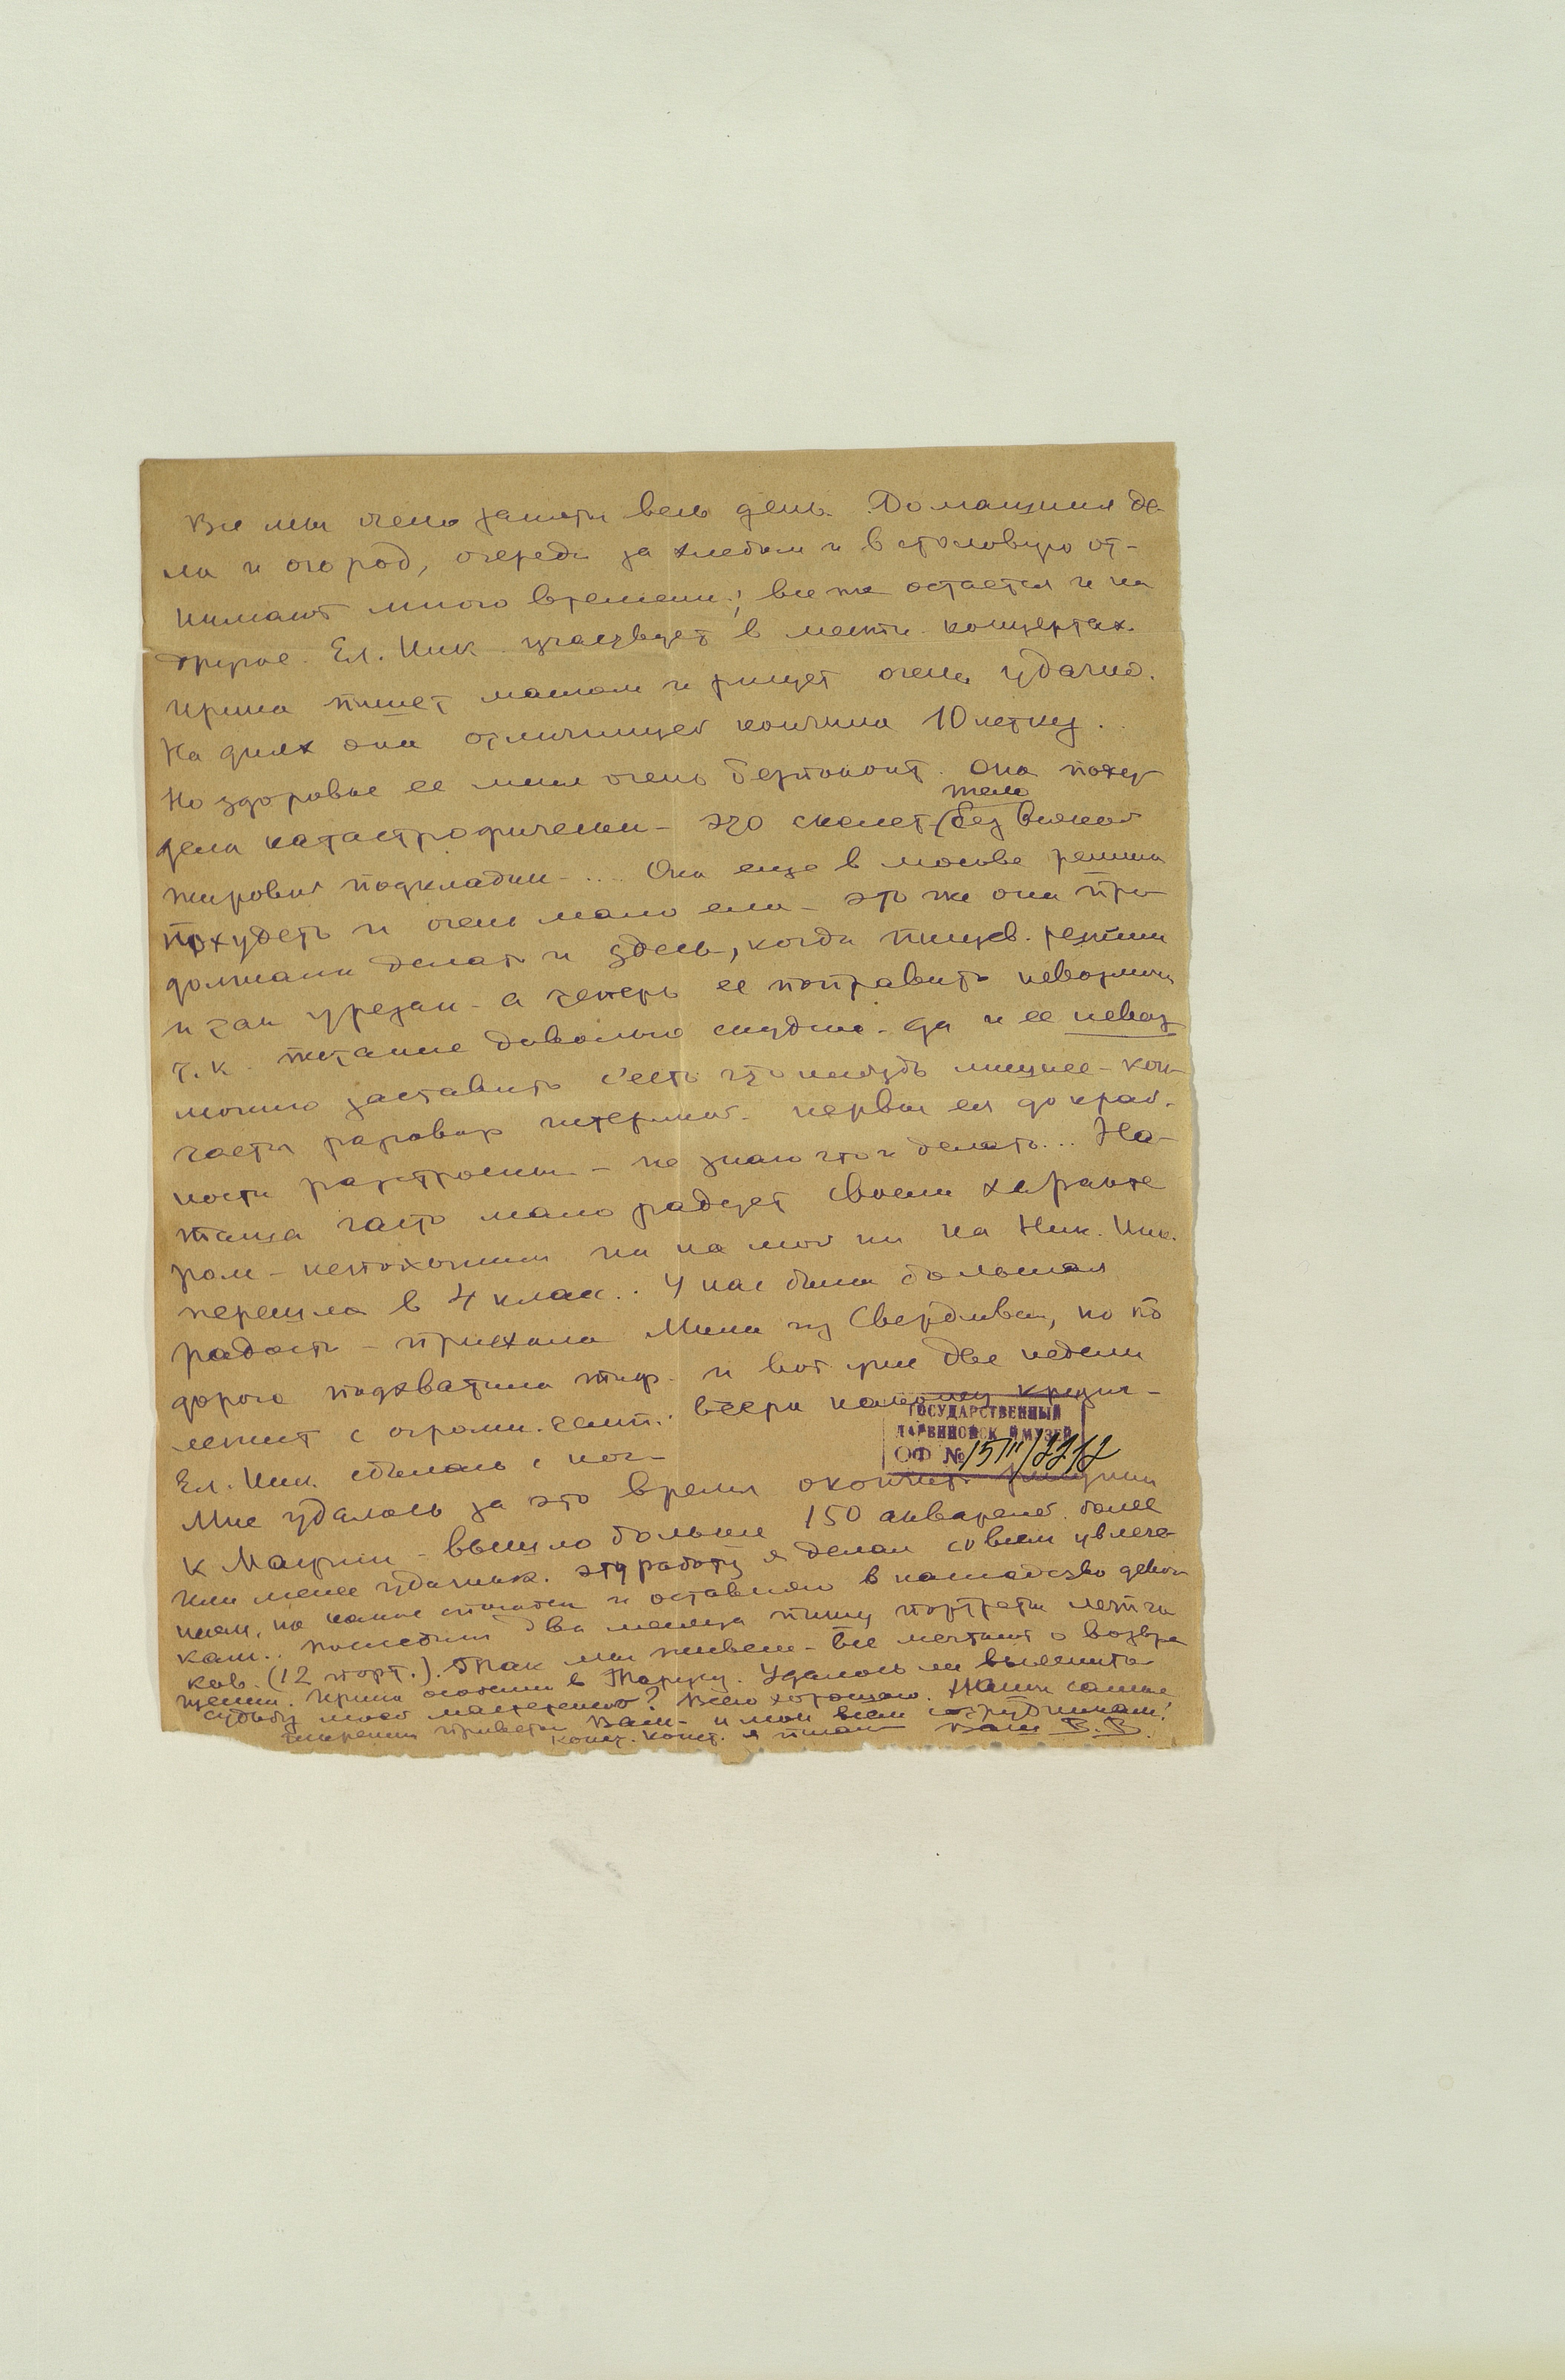 Все мы очень заняты весь день. Домашния де-
ла и огород, очереди за хлебом и в столовую от-
нимают много времени; все же остается и на
другое. Ел. Ник. участвует в местн. концертах.
Ирина пишет маслом и рисует очень удачно.
На днях она отличницей кончила 10летку.
Но здоровье ее меня очень безпокоит. Она поху-
тело
дела катастрофически - это скелет (без всякой
жировой подкладки - ... Она еще в Москве решила
похудеть и очень мало ела - это же она про-
должала делать и здесь, когда пищев. режим
и так урезан - а теперь ее поправить невозможн
т.к. питание довольно скудное. Да и ее невоз
можно заставить с'есть что нибудь лишнее - кон-
чается разговор истерикой. Нервы ея до край-
ности расстроены - не знаю что и делать... На-
таша часто мало радует своим характе
ром - непохожим ни на мой ни на Ник. Ник.
перешла в 4 класс.. У нас была большая
радость - приехала Мина из Свердловска, но по
дороге подхватила тиф - и вот уже две недели
лежит с огромн. темп. вчера наконец кризис -
ГОСУДАРСТВЕННЫЙ
ДАРВИНОВСК. Й МУЗЕЙ
ОФ № 15111/2212
Ел. Ник. сбилась с ног -
Мне удалось за это время окончить рисунки
к Маугли - вышло больше 150 акварелей. более
или менее удачных. Эту работу я делал со всем увлече-
нием, но камне и оставляю в наследство девоч
кам.. последния два месяца пишу портреты летчи
ков. (12 порт.). Так мы живем - Все мечтают о возвра
щении. Ирина особенно в Тарусу. Удалось ли выяснить
судьбу моей мастерской? Всего хорошаго. Наши самые
искренни приветы Вам - и мои всем сотрудникам!
Конст. Конст. я писал Ваш В.В.